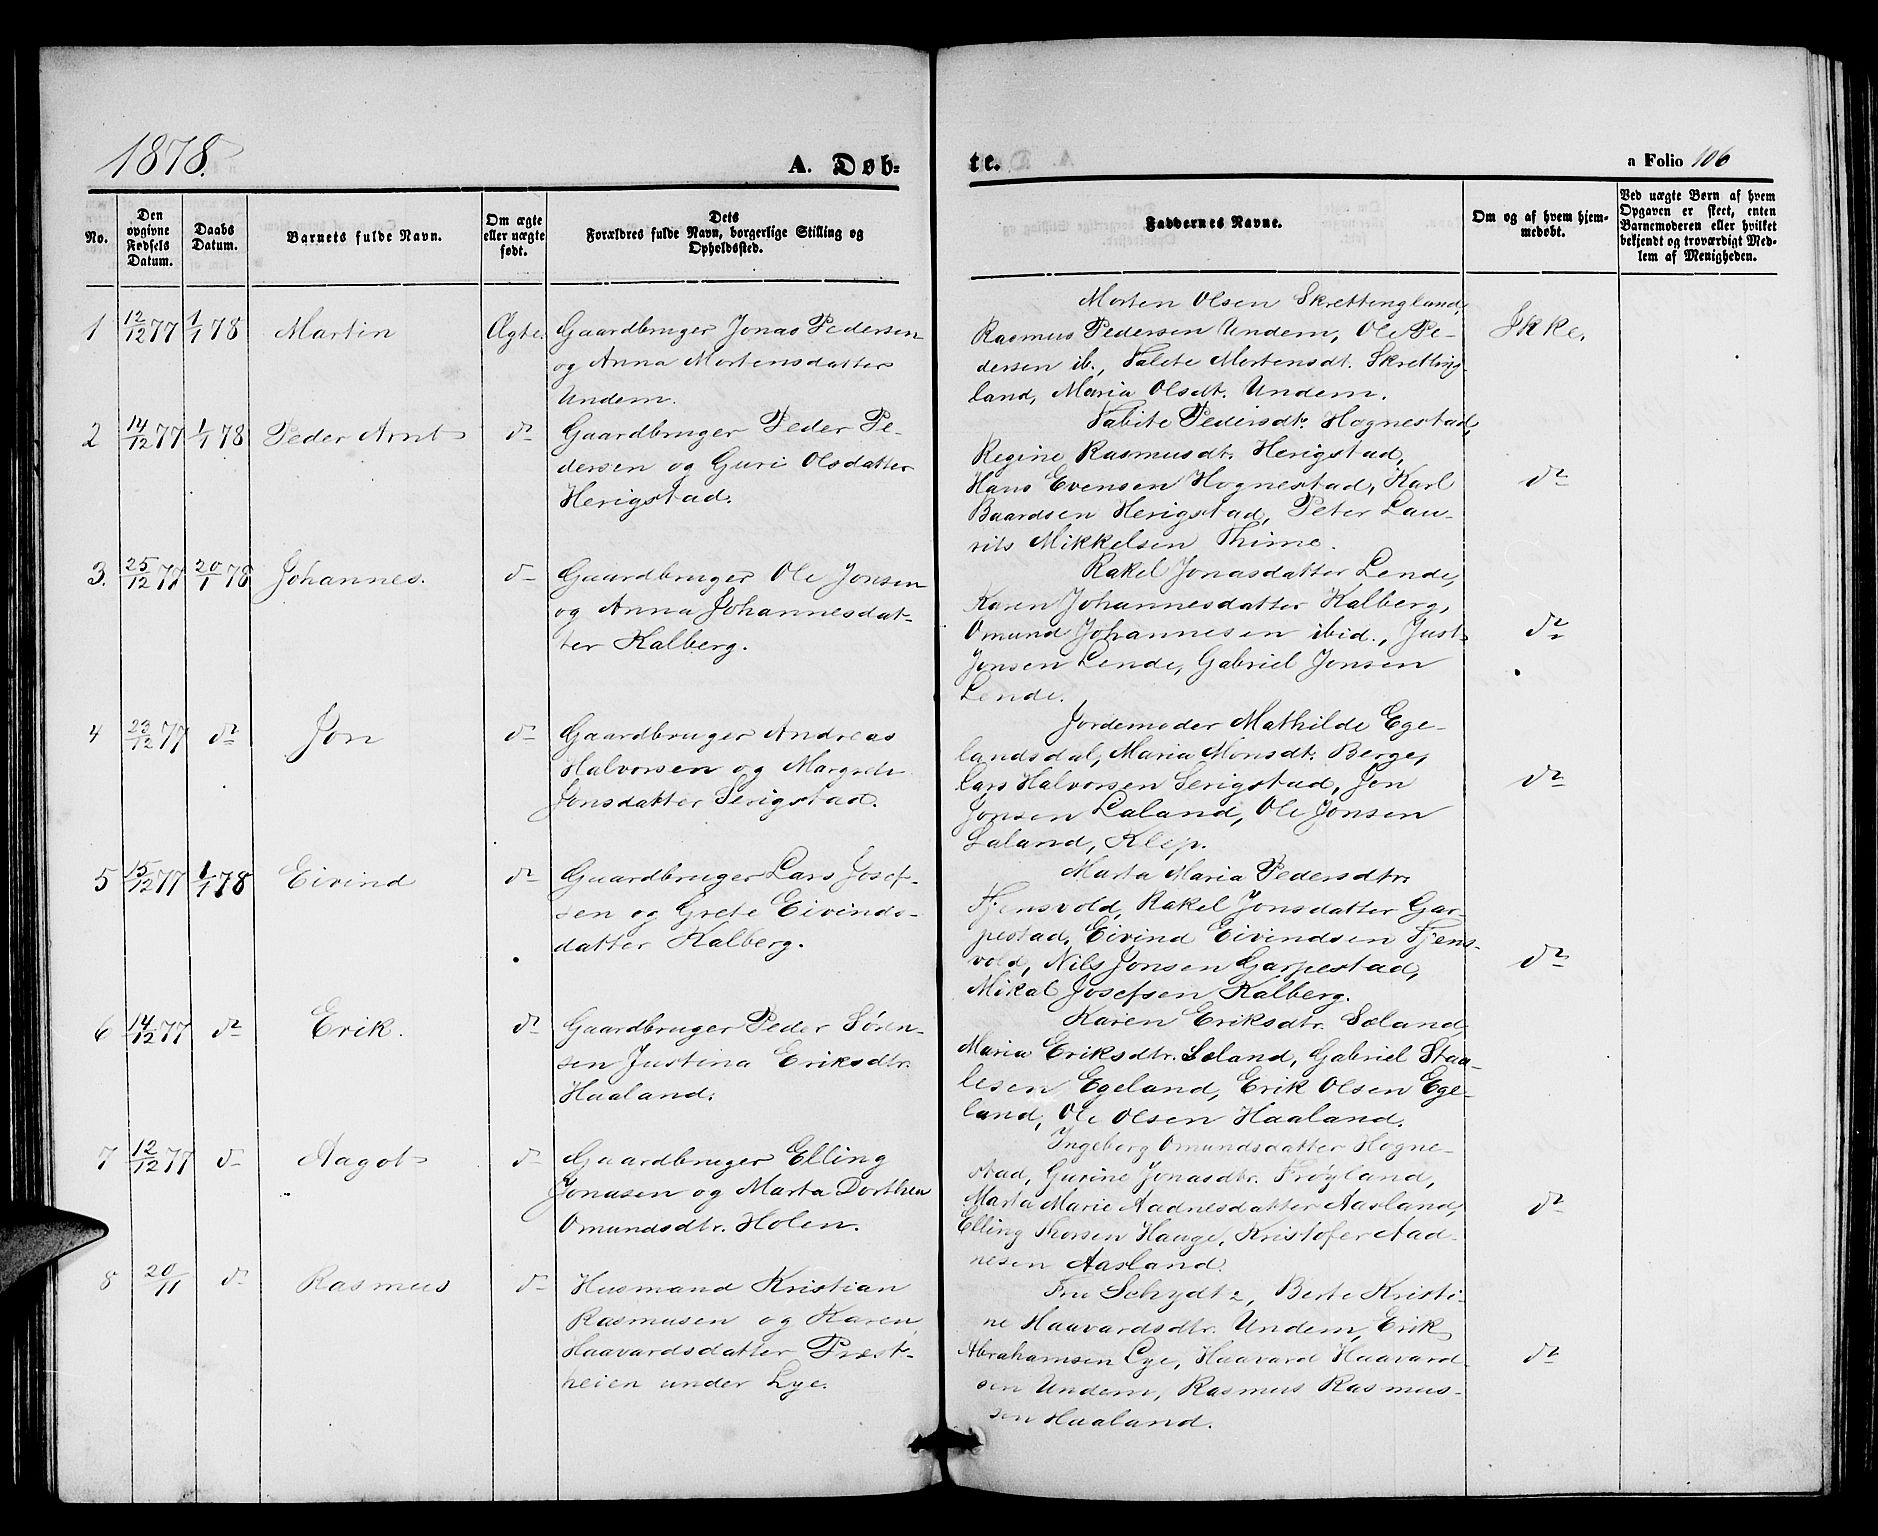 1878.
A. Døb=
te.
a Folio 106
No.
Den opgivne Fødsels Datum.
Daabs Datum.
Barnets fulde Navn.
Om ægte eller uægte født.
Dets Forældres fulde Navn, borgerlige Stilling og Opholdssted.
Faddernes Navne.
Om og af hvem hjemmedøbt.
Ved uægte Børn af hvem Opgaven er skeet, enten Barnemoderen eller hvilket bekjendt og troværdigt Medlem af Menigheden.
1 12/12 77 1/1 78 Martin Ægte.
Gaardbruger Jonas Pedersen
og Anna Mortensdatter
Undem.
Morten Olsen Skrettingland,
Rasmus Pedersen Undem, Ole Pe-
dersen ib., Valete Mortensdt. Skretting-
land, Maria Olsdt. Undem.
Ikke.
2 14/12 77 1/1 78 Peder Arnt do
Gaardbruger Peder Pe-
dersen og Guri Olsdatter
Herigstad.
Tabite Pedersdt. Hognestad,
Regine Rasmusdt. Herigstad,
Hans Evensen Hognestad, Karl
Baardsen Herigstad, Peter Lau-
rits Mikkelsen Thime.
do
3. 25/12 77 20/1 78 Johannes. do
Gaardbruger Ole Jonsen
og Anna Johannesdat-
ter Kalberg.
Rakel Jonasdatter Lende,
Karen Johannesdatter Kalberg,
Omund Johannesen ibid., Just
Jonsen Lende, Gabriel Jonsen
Lende.
do
4 23/12 77 do Jon do
Gaardbruger Andreas
Halvorsen og Margrete
Jonsdatter Serigstad.
Jordemoder Mathilde Ege-
landsdal, Maria Monsdt. Berge,
Lars Halvorsen Serigstad, Jon
Jonsen Laland, Ole Jonsen
Laland, Klep.
do
5 15/12 77 1/1 78 Eivind do
Gaardbruger Lars Josef-
sen og Grete Eivinds-
datter Kalberg.
Marta Maria Pedersdtr.
Fjensvold, Rakel Jonsdatter Gar-
pestad, Eivind Eivindsen Fjens-
vold, Nils Jonsen Garpestad,
Mikal Josefsen Kalberg.
do
6 14/12 77 do Erik. do
Gaardbruger Peder Søren-
sen Justina Eriksdtr.
Haaland.
Karen Eriksdtr. Sæland,
Maria Eriksdtr. Sæland, Gabriel Staa-
lesen Egeland, Erik Olsen Ege-
land, Ole Olsen Haaland.
7 12/12 77 do Aagot do
Gaardbruger Elling
Jonasen og Marta Dorthea
Omundsdtr. Holen.
Ingeborg Omundsdatter Hogne-
stad, Gurine Jonasdtr. Frøyland,
Marta Marie Aadnesdatter Aasland,
Elling Thorsen Hauge, Kristofer Aad-
nesen Aasland.
do
8 20/11 do Rasmus do
Husmand Kristian
Rasmusen og Karen
Haavardsdatter Præst-
heien under Lye.
Fru Schydtz, Berte Kristi-
ne Haavardsdtr. Undem, Erik
Abrahamsen Lye, Haavard Haavard-
sen Undem, Rasmus Rasmus-
sen Haaland.
do